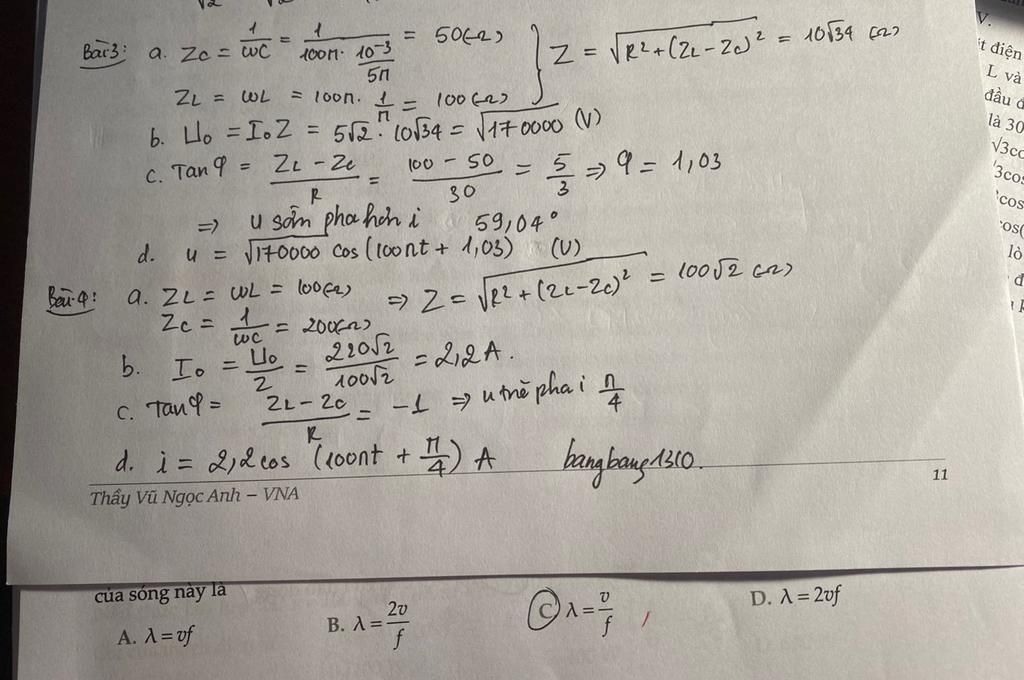 Bài 3: a. Zc = 1/ωC = 1/(100π. 10⁻³/5π) = 50(Ω)
ZL = ωL = 100π. 1/π = 100(Ω)
} Z = √(R² + (ZL - ZC)²) = 10√34 (Ω)
b. U₀ = I₀Z = 5√2 . 10√34 = √170000 (V)
c. Tanφ = (ZL - ZC)/R = (100 - 50)/30 = 5/3 ⇒ φ = 1,03
⇒ u sớm pha hơn i 59,04°
d. u = √170000 cos(100πt + 1,03) (V)
Bài 4: a. ZL = ωL = 100(Ω) ⇒ Z = √(R² + (ZL - ZC)²) = 100√2 (Ω)
Zc = 1/ωC = 200(Ω)
b. I₀ = U₀/Z = 220√2/100√2 = 2,2A.
c. Tanφ = (ZL - ZC)/R = -1 ⇒ u trễ pha i π/4
d. i = 2,2cos (100πt + π/4) A bangbang1310.
Thầy Vũ Ngọc Anh – VNA 11
V.
t điện
L và
đầu đ
là 30
√3co
3cos
cos
cos(
lò
của sóng này là
A. λ = vf B. λ = 2v/f C. λ = v/f D. λ = 2vf